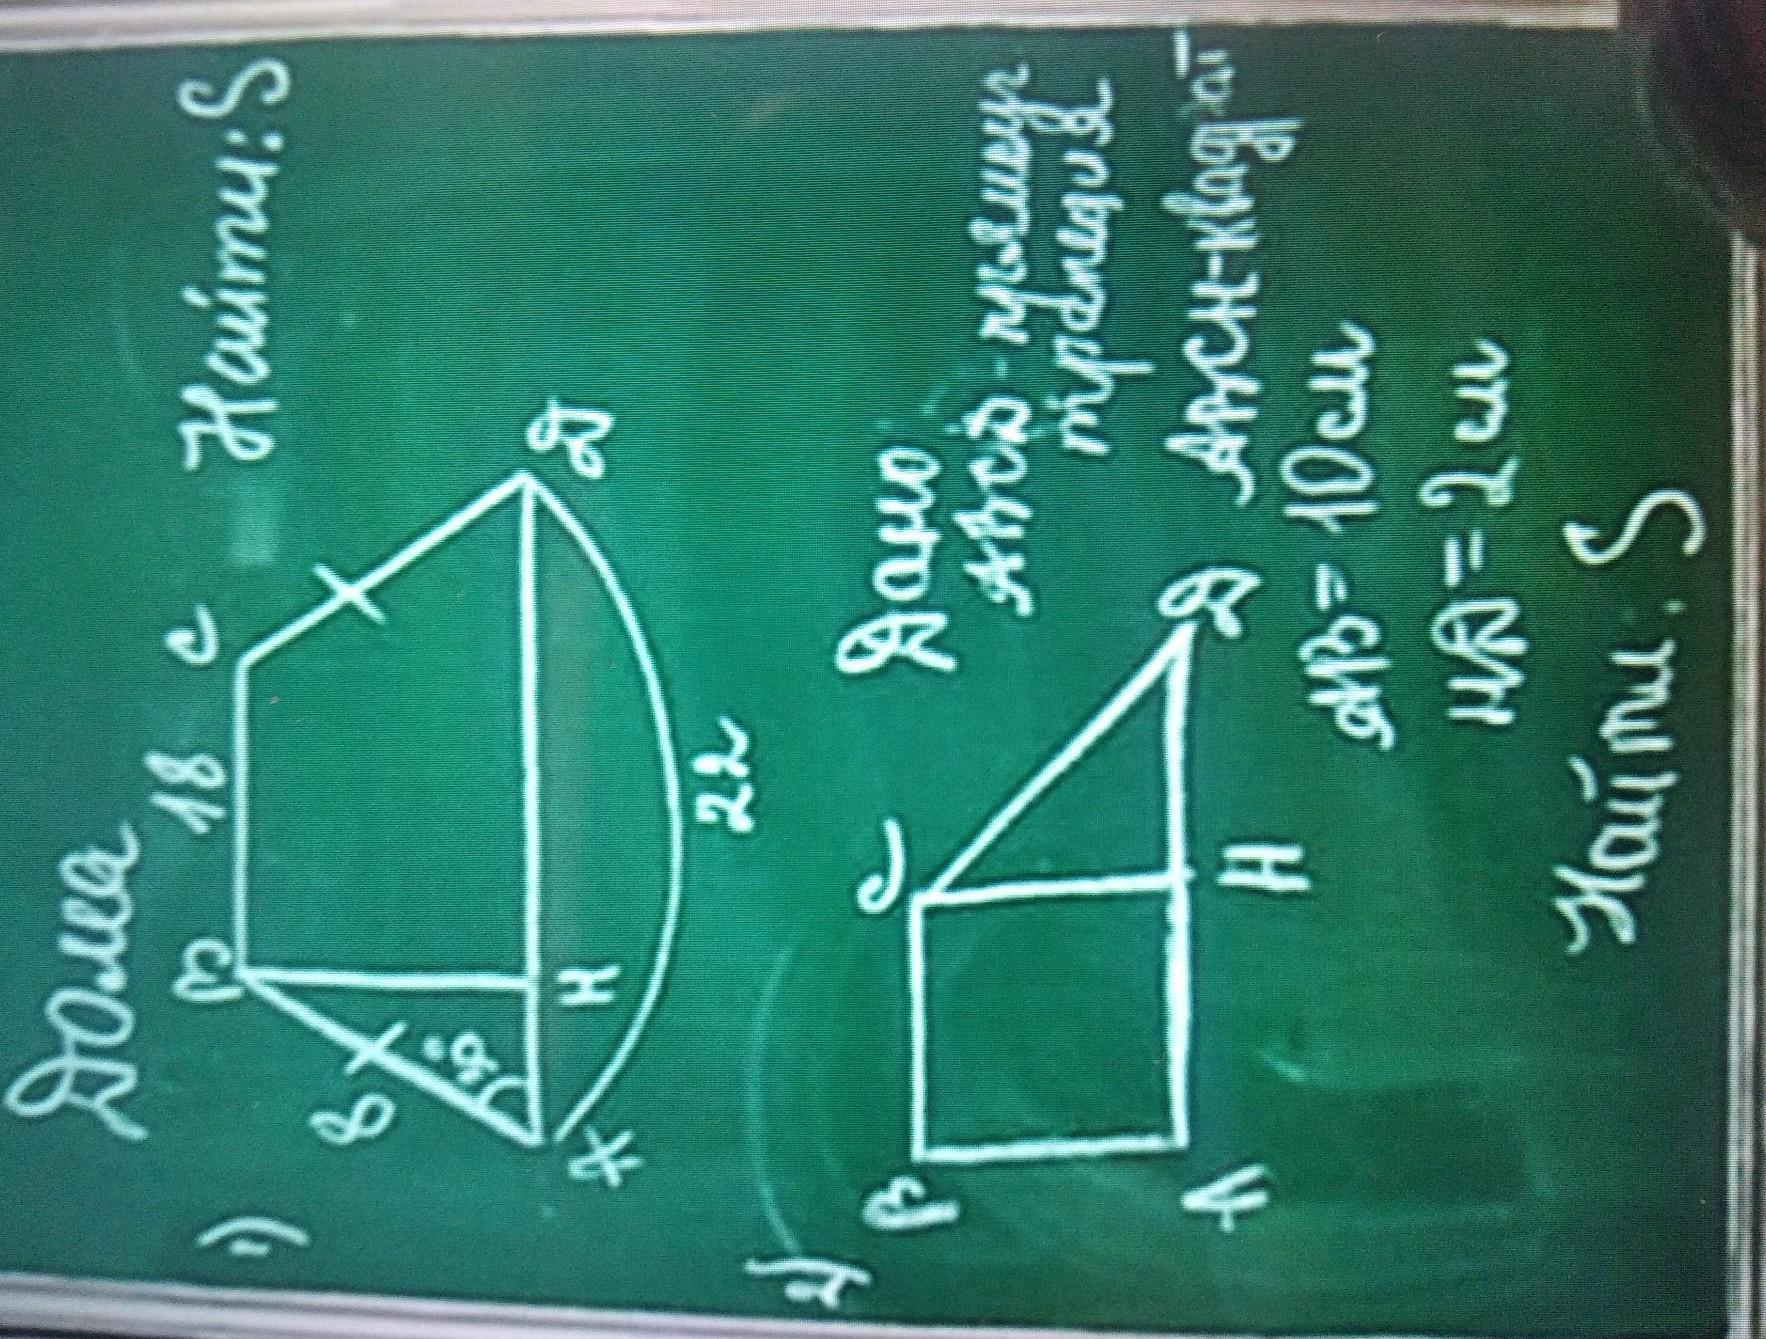 Дома
1) Найти: S
B 18 C
8
30°
A H D
22
2) Дано
ABCD - прямоуг
трапеция
ABCH - квад
AB = 10 см
HD = 2 см
Найти: S
B C
A H D